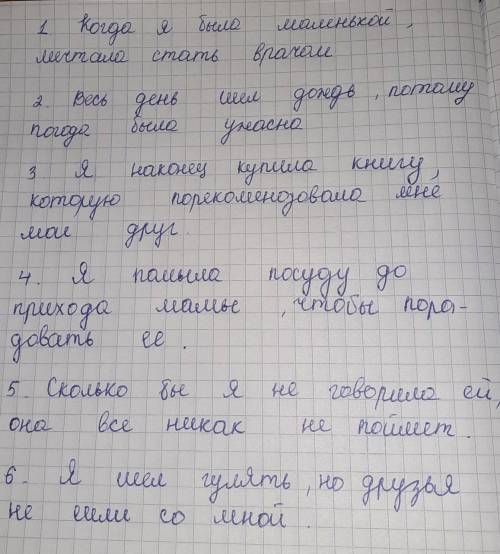 1 Когда я была маленькой,
мечтала стать врачом
2. Весь день шел дождь, потому
погода была ужасна
3. Я наконец купила книгу,
которую порекомендовала мне
моя друг.
4. Я помыла посуду до
прихода мамы, чтобы пора-
довать ее.
5. Сколько бы я не говорила ей,
она все никак не поймет.
6. Я шел гулять, но друзья
не шли со мной.